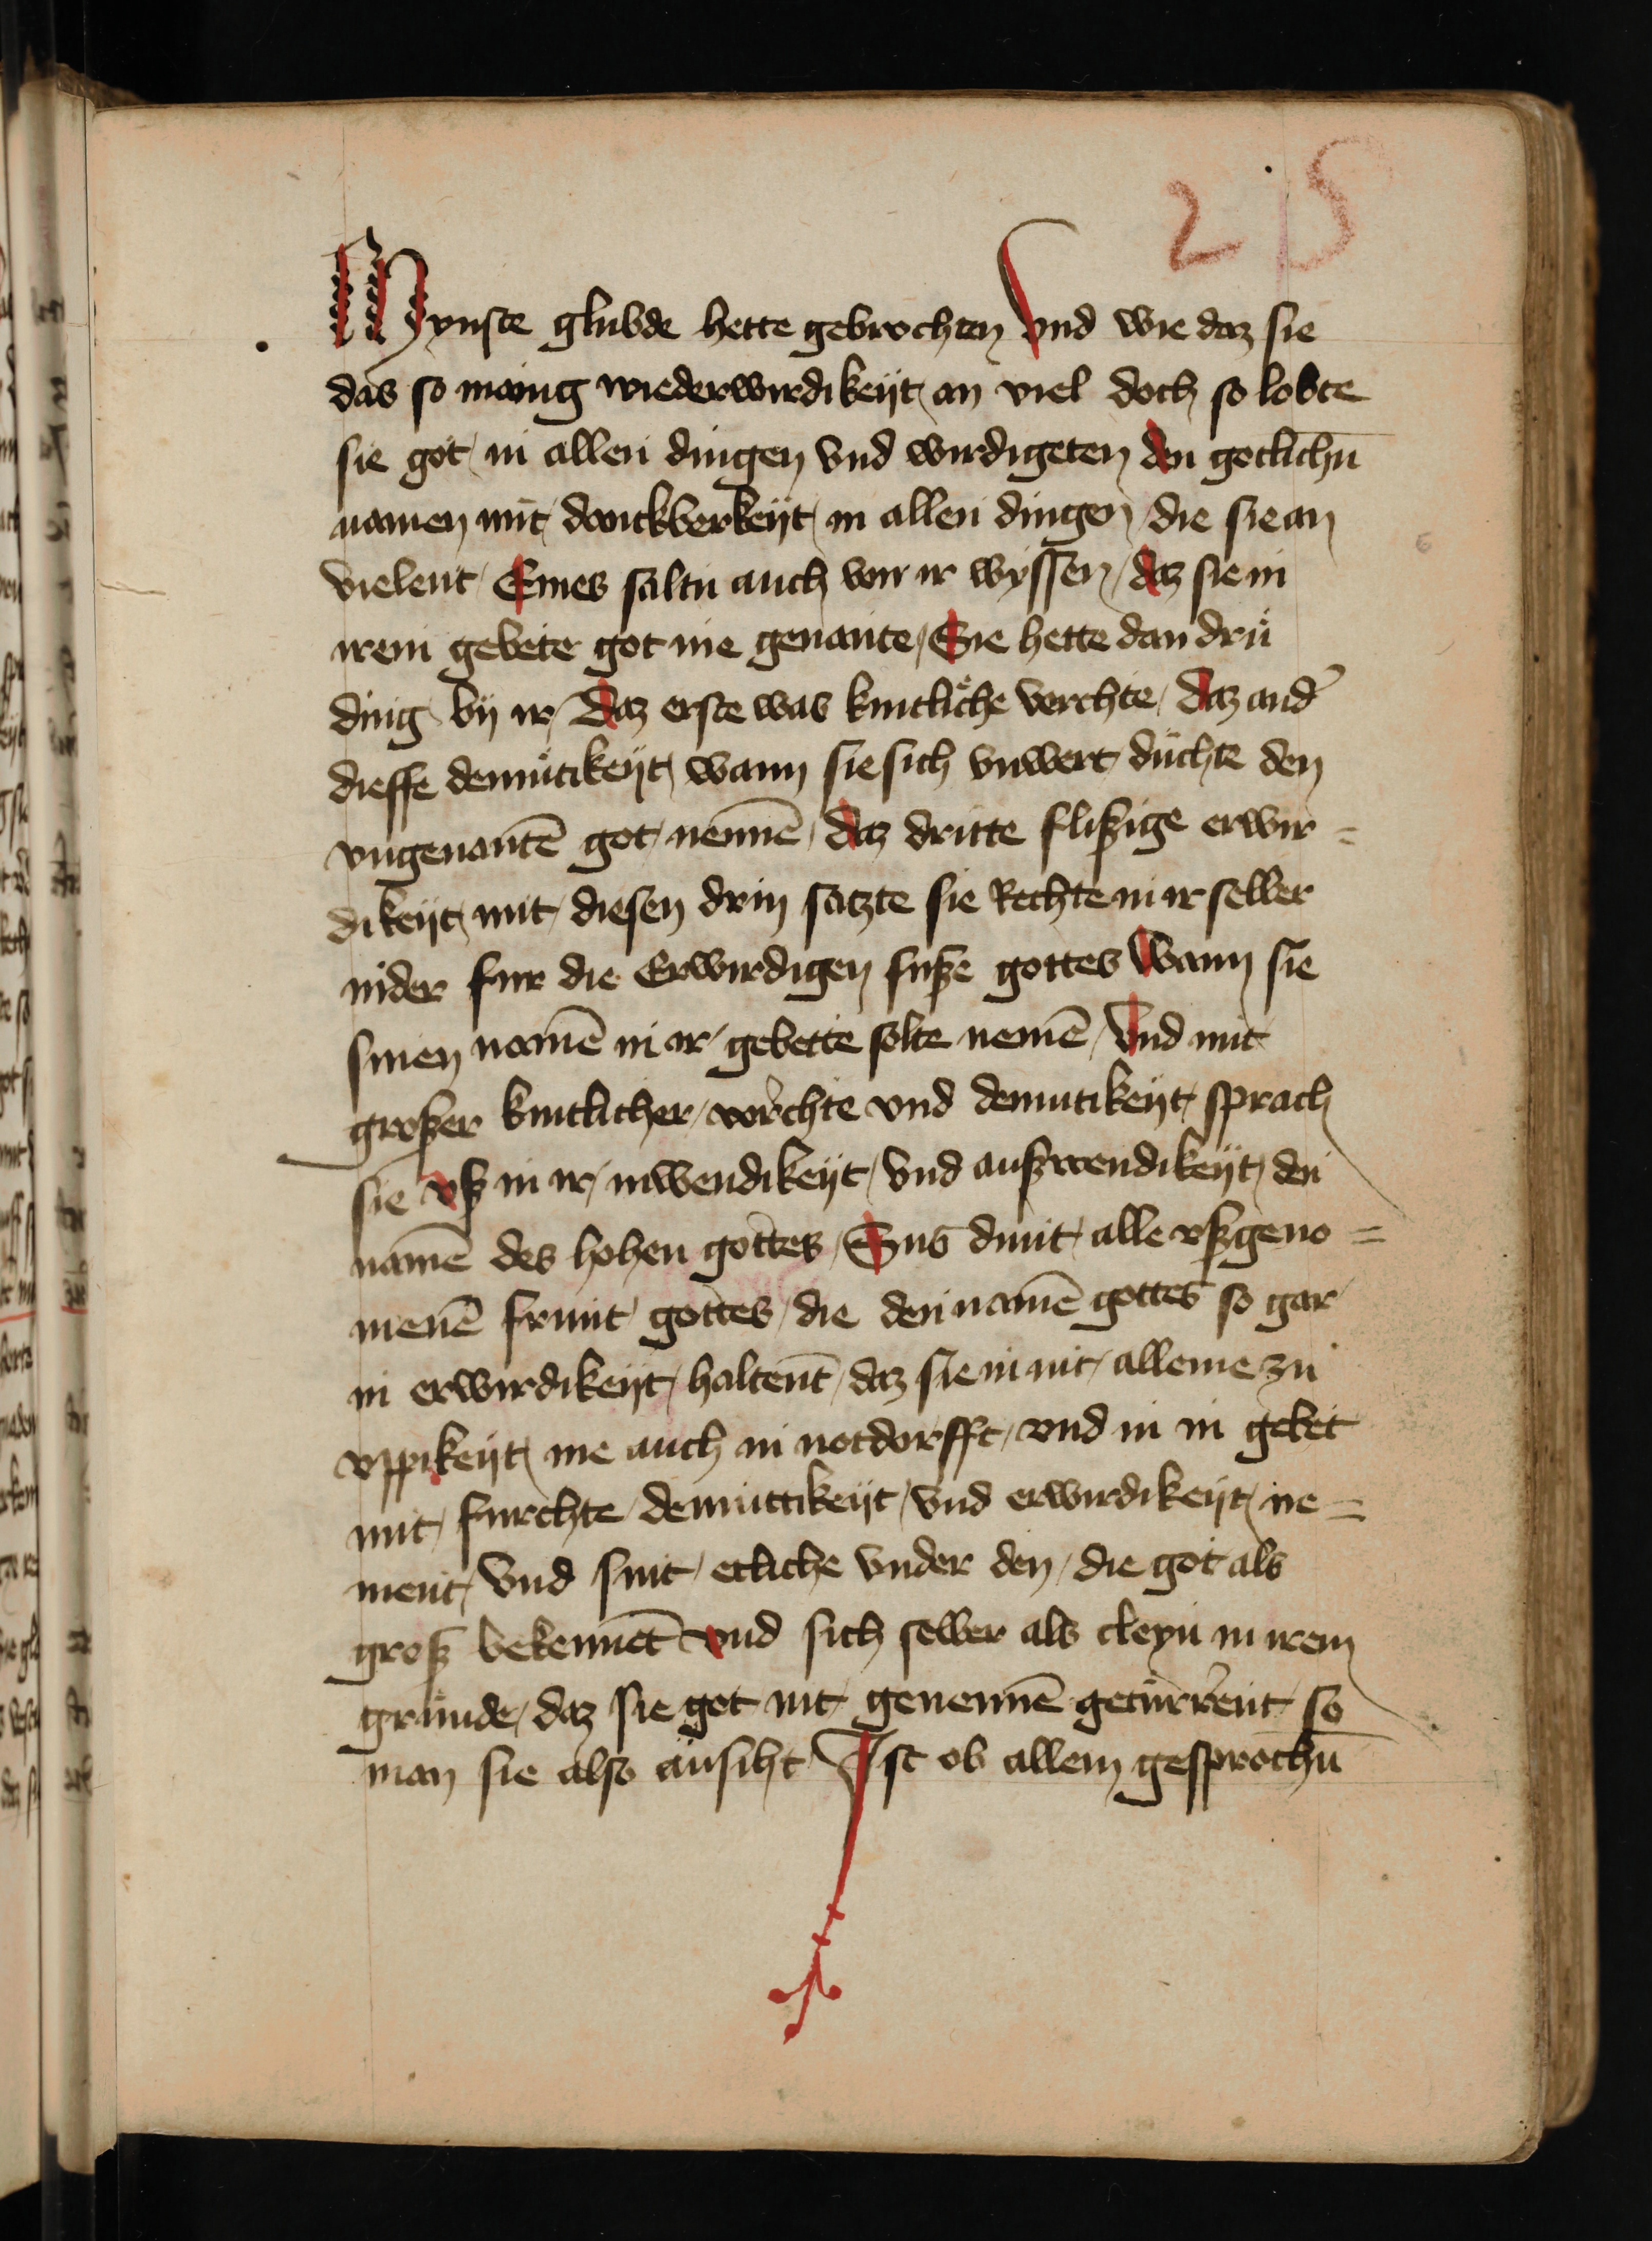 215
Mynste glubde hette gebrochen Vnd wie daz sie
das so manig wiederwirdikeyt an viel doch so lobte
sie got in allen dingen vnd wirdigeten den gotlichn̄
namen mit danckberkeyt in allen dingen die sie an
vielent Eines saltu auch von ir wyssen daz sie in
irem gebete got nie genante Sie hette dan drü
ding by ir Daz erste was kintliche vorchte Daz and̓
dieffe demütikeyt wann sie sich vnwert düchte den
vngenantē got nennē Daz dritte flißige erwir=
dikeyt mit diesen drin satzte sie Rechte in ir selber
nider fur die Erwirdigen fuße gottes Wann sie
sinen namē in ir gebette solte nemē Vnd mit
großer kintlicher vorchte vnd demutikeyt sprach
sie vß in ir inwendikeyt vnd außwendikeyt den
namē des hohen gottes Sus dunt alle vßgeno=
menē frunt gottes die den namē gottes so gar
in erwirdikeyt haltent daz sie in nit alleine zu
vppikeyt nie auch in notdorfft vnd in in gebet
mit furchte demuttikeyt vnd erwirdikeyt ne=
ment Vnd sint etliche vnder den die got als
groß bekennēt vnd sich selber als cleyn in irem
grunde daz sie got nit genennē geturrent so
man sie also ansiht Ist ob allem gesprochn̄